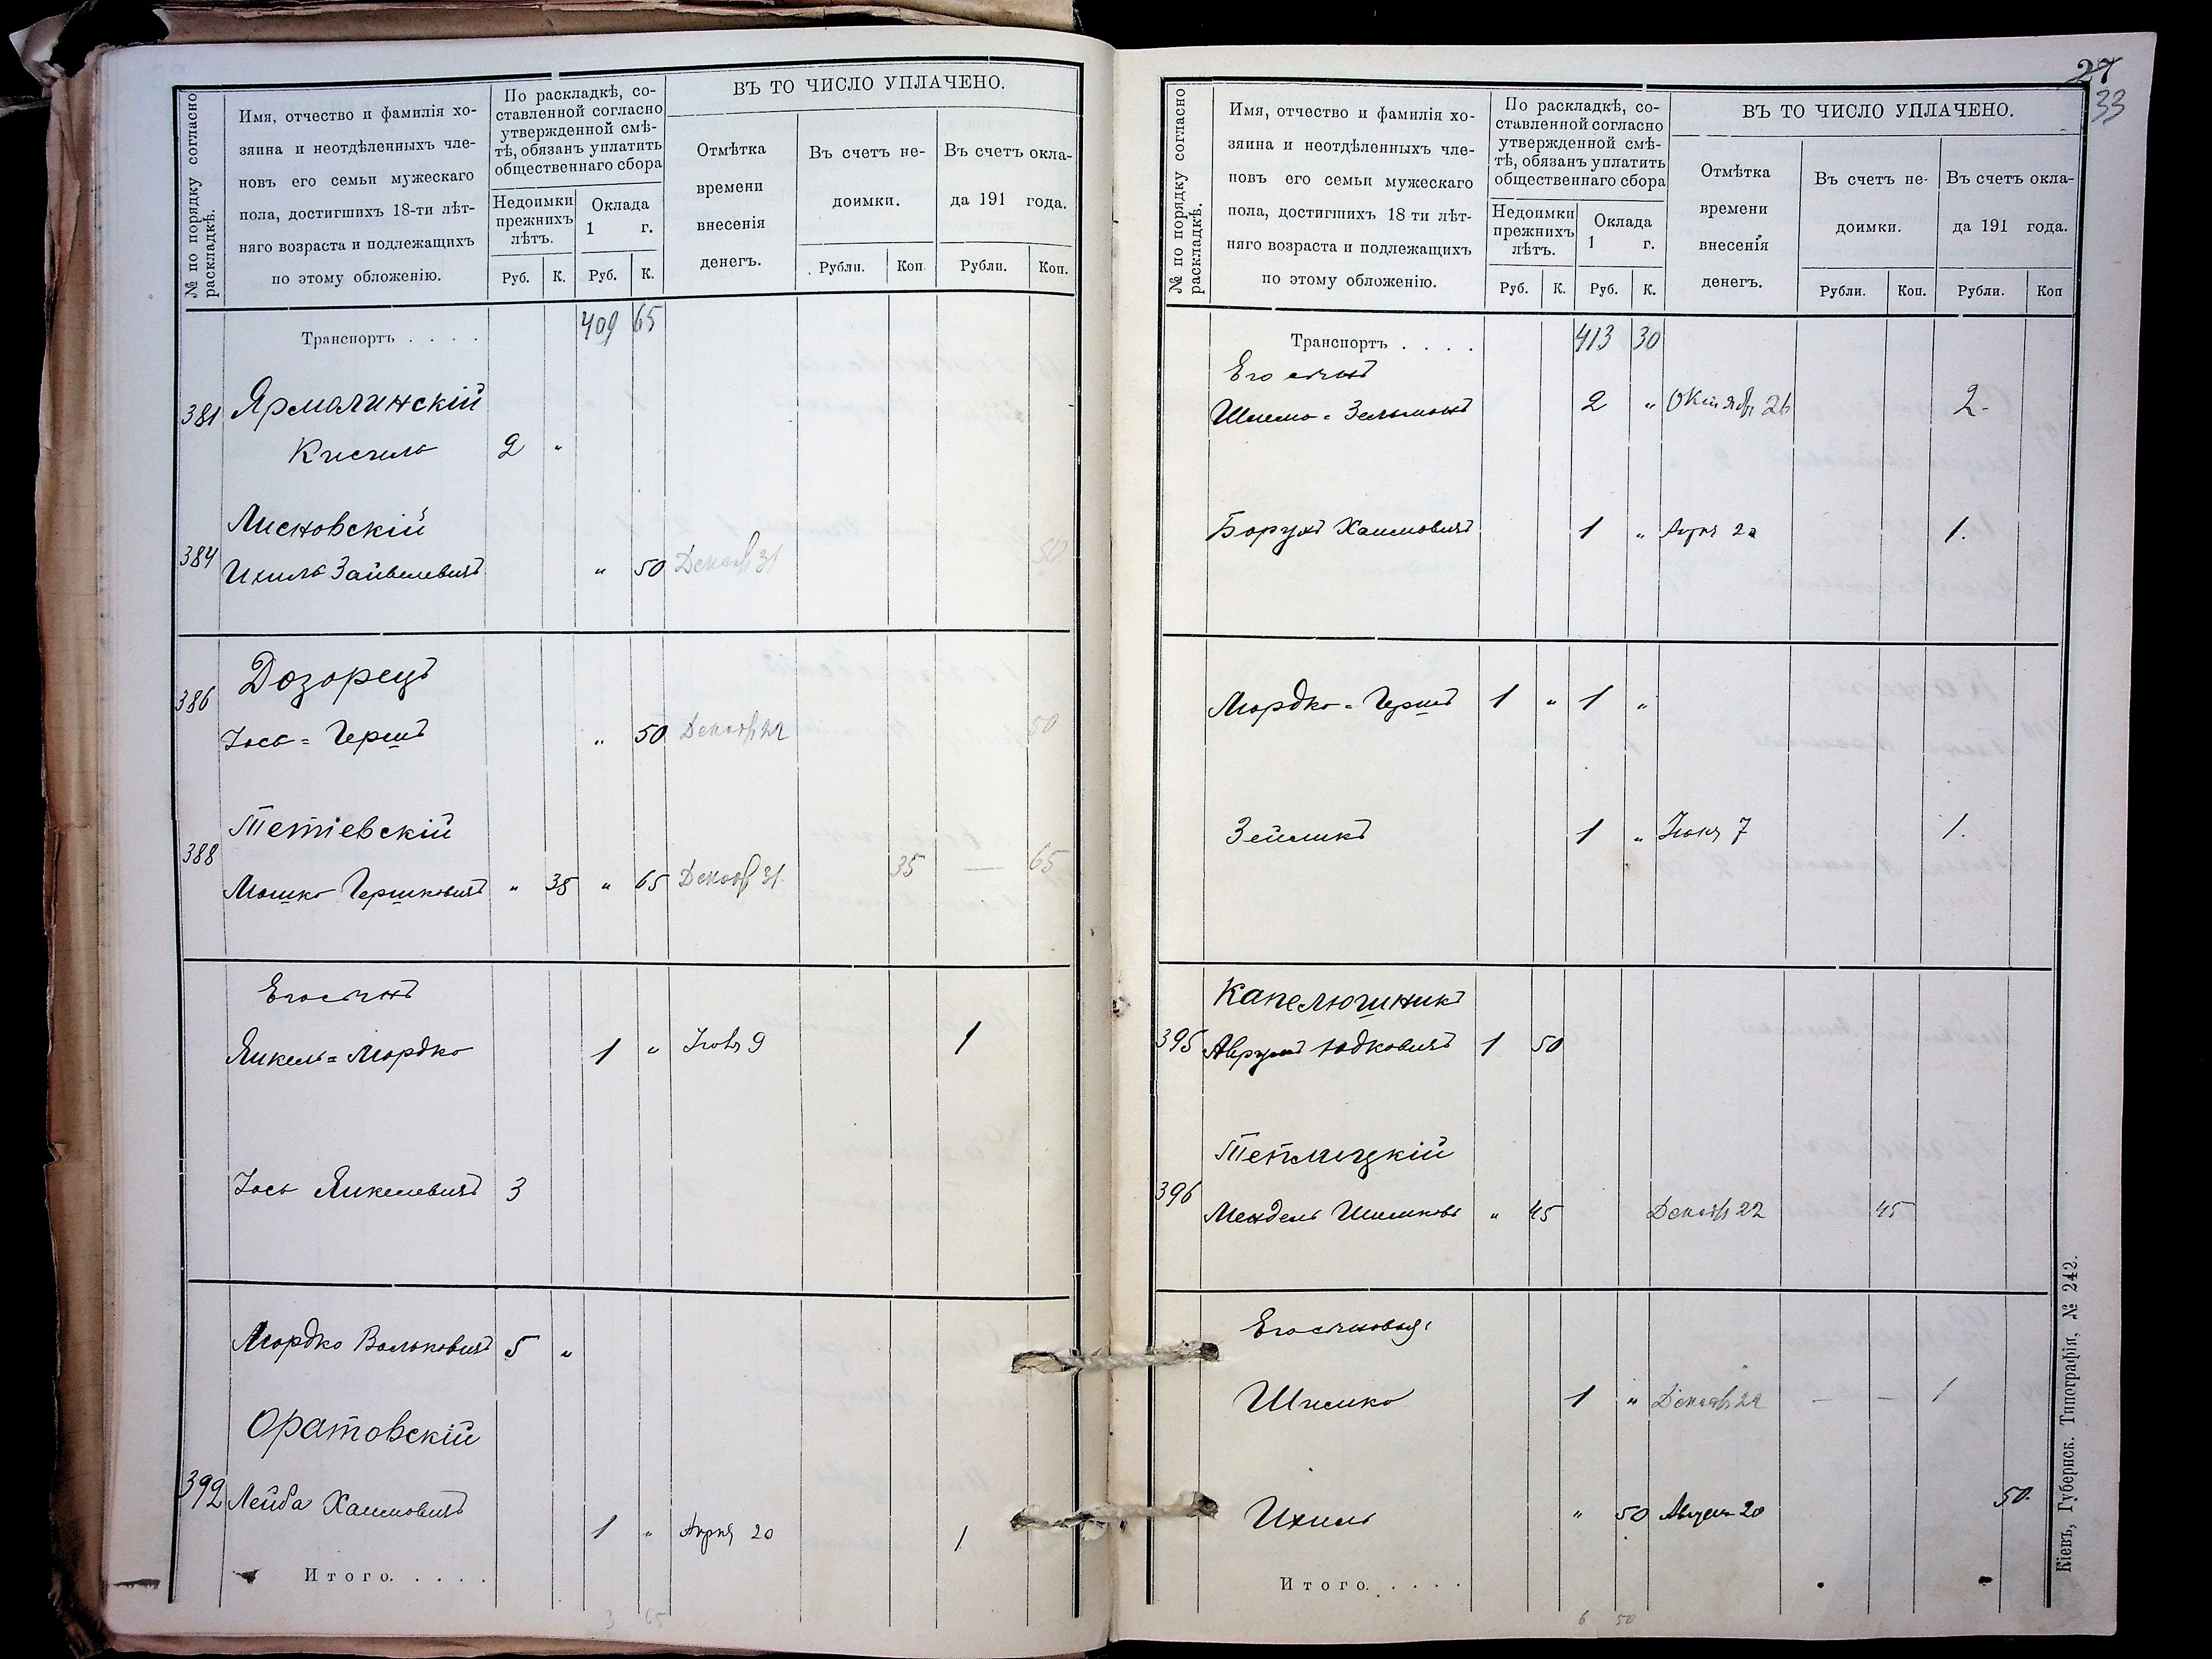 № по порядку согласно раскладкѣ.
Имя, отчество и фамилія хо-
зяина и неотдѣленныхъ чле-
новъ его семьи мужескаго
пола, достигшихъ 18-ти лѣт-
няго возраста и подлежащихъ
по этому обложенію.
По раскладкѣ, со-
ставленной согласно
утвержденной смѣ-
тѣ, обязанъ уплатить
общественнаго сбора
Недоимки прежнихъ лѣтъ.
Оклада 1 г.
Руб. К. Руб. К.
ВЪ ТО ЧИСЛО УПЛАЧЕНО.
Отмѣтка
времени
внесенія
денегъ.
Въ счетъ не-
доимки.
Въ счетъ окла-
да 191 года.
Рубли. Коп. Рубли. Коп.
Транспортъ . . . . 409 65
Ярмалинскій
381
Кисиль 2 „
Лисновскій
384
Ихиль Зайвелевичъ „ 50 Декабр 31 50
Дозорецъ
386
Іось=Гершъ „ 50 Декабр 22 50
Тетіевскій
388
Мошко Гершковичъ „ 35 „ 65 Декабр 31. 35 — 65
Его сынъ
Янкель=Мордко 1 „ Іюня 9 1
Іось Янкелевичъ 3
Мордко Вольковичъ 5 „
Оратовскій
392 Лейба Хаимовичъ
1 „ Апрѣ 20 1
Итого. . . . .
3 65
27
33
№ по порядку согласно раскладкѣ.
Имя, отчество и фамилія хо-
зяина и неотдѣленныхъ чле-
новъ его семьи мужескаго
пола, достигшихъ 18 ти лѣт-
няго возраста и подлежащихъ
по этому обложенію.
По раскладкѣ, со-
ставленной согласно
утвержденной смѣ-
тѣ, обязанъ уплатить
общественнаго сбора
Недоимки прежнихъ лѣтъ.
Оклада 1 г.
Руб. К. Руб. К.
ВЪ ТО ЧИСЛО УПЛАЧЕНО.
Отмѣтка
времени
внесенія
денегъ.
Въ счетъ не-
доимки.
Въ счетъ окла-
да 191 года.
Рубли. Коп. Рубли. Коп
Транспортъ . . . . 413 30
Его сынъ
Шлемо=Зельманъ 2 „ Октябр 26 2.
Борухъ Хаимовичъ 1 „ 1.
Мордко=Гершъ 1 „ 1 „
Зейликъ 1 „ Іюня 7 1.
Капелюшникъ
395 Аврумъ Юдковичъ 1 50
Теплицкій
396
Мендель Шимков „ 45 Декабр 22 45
Его сыновья:
Шимко 1 „ Декабр 22 — — 1
Ихиль „ 50 Август 20 50.
Итого. . . . .
6 50
Кіевъ, Губернск. Типографія, № 242.